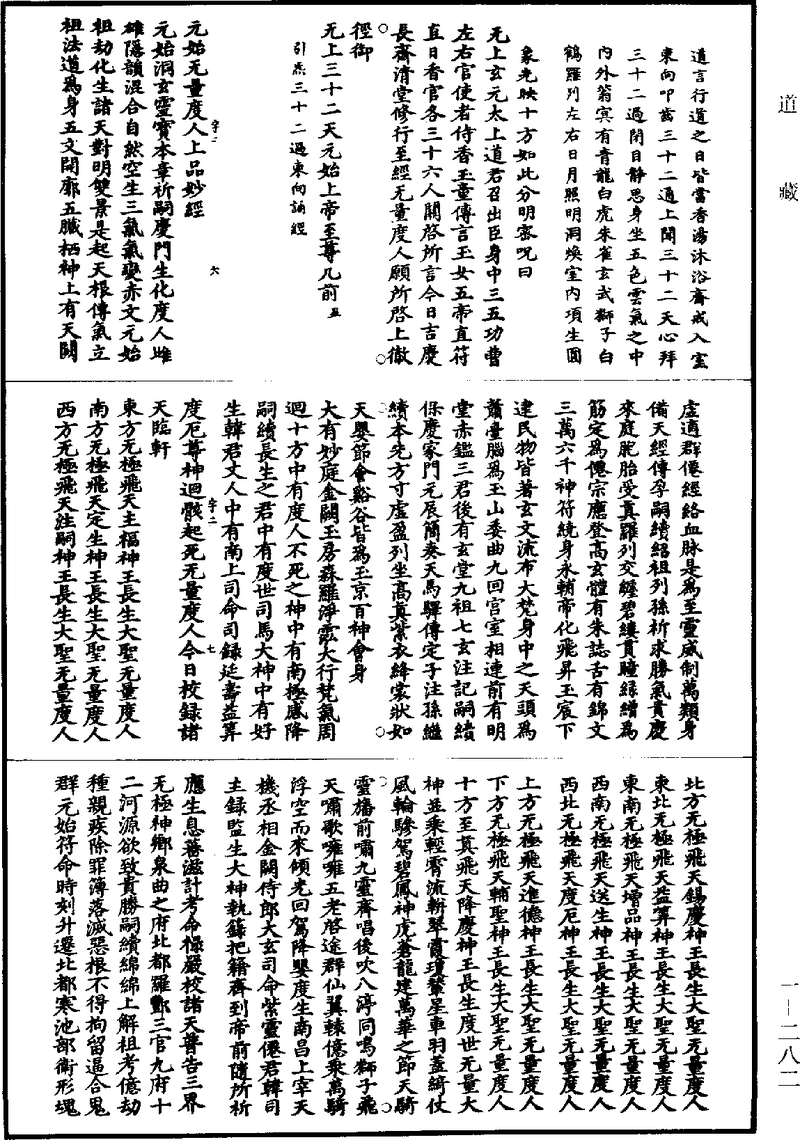 道藏
道言行道之日皆當香湯沐浴齋戒入室
東向叩齒三十二通上聞三十二天心拜
三十二過閉目靜思身坐五色雲氣之中
內外蓊冥有青龍白虎朱雀玄武獅子白
鶴羅列左右日月照明洞煥室內項生圓
象光映十方如此分明密呪曰
无上玄元太上道君召出臣身中三五功曹
左右官使者侍香玉童傳言玉女五帝直符
直日香官各三十六人關啓所言今日吉慶
長齋清堂修行至經无量度人願所啓上徹
徑御
无上三十二天元始上帝至尊几前 五
引炁三十二過東向誦經
字二 六
元始无量度人上品妙經
元始洞玄靈寶本章祈嗣慶門生化度人雌
雄隱韻混合自然空生三氣氣變赤文元始
祖劫化生諸天對明雙景是起天根傳氣立
祖法道為身五文開廓五臟栖神上有天關
虛通群僊經絡血脉是為至靈威制萬類身
備天經傳孕嗣續紹祖列孫祈求勝氣貴慶
來庭胞胎受真羅列交纏碧縷貫瞳綠繒為
筋定為僊宗應登高玄體有朱誌舌有錦文
三萬六千神符繞身永輔帝化飛昇玉宸下
逮民物皆著玄文流布大梵身中之天頭為
蕭臺腦為玉山委曲九回宫室相連前有明
堂赤鑑三君後有玄堂九祖七玄注記嗣續
保慶家門元辰簡奏天馬驛傳定子注孫繼
續本先方寸虛盈列坐高真紫衣絳裳狀如
天嬰節會谿谷皆為玉京百神會身
大有妙庭金闕玉房森羅淨霐大行梵氣周
迴十方中有度人不死之神中有南極感降
嗣續長生之君中有度世司馬大神中有好
生韓君丈人中有南上司命司録延壽益算
度厄尊神迴骸起死无量度人今日校録諸
字二 七
天臨軒
東方无極飛天主福神王長生大聖无量度人
南方无極飛天定生神王長生大聖无量度人
西方无極飛天注嗣神王長生大聖无量度人
北方无極飛天錫慶神王長生大聖无量度人
東北无極飛天益算神王長生大聖无量度人
東南无極飛天增品神王長生大聖无量度人
西南无極飛天送生神王長生大聖无量度人
西北无極飛天度厄神王長生大聖无量度人
上方无極飛天進德神王長生大聖无量度人
下方无極飛天輔聖神王長生大聖无量度人
十方至真飛天降慶神王長生度世无量大
神並乘輕霄流軿翠霞瓊輦星車羽蓋綺仗
風輪驂駕碧鳳神虎蒼龍建萬華之節天騎
靈旛前嘯九靈齊唱後吹八渟同鳴獅子飛
天嘯歌嗈嗈五老啓途群仙翼轅億乘萬騎
浮空而來傾光回駕降嬰度生南昌上宰天
機丞相金闕侍郎大玄司命紫靈僊君韓司
主録監生大神執籙把籍齊到帝前隨所祈
應生息蕃滋計考命祿嚴校諸天普告三界
无極神鄉泉曲之府北都羅酆三官九府十
二河源欲致貴勝嗣續綿綿上解祖考億劫
種親疾除罪簿落滅惡根不得拘留逼合鬼
群元始符命時刻升遷北都寒池部衛形魂
一—二八二